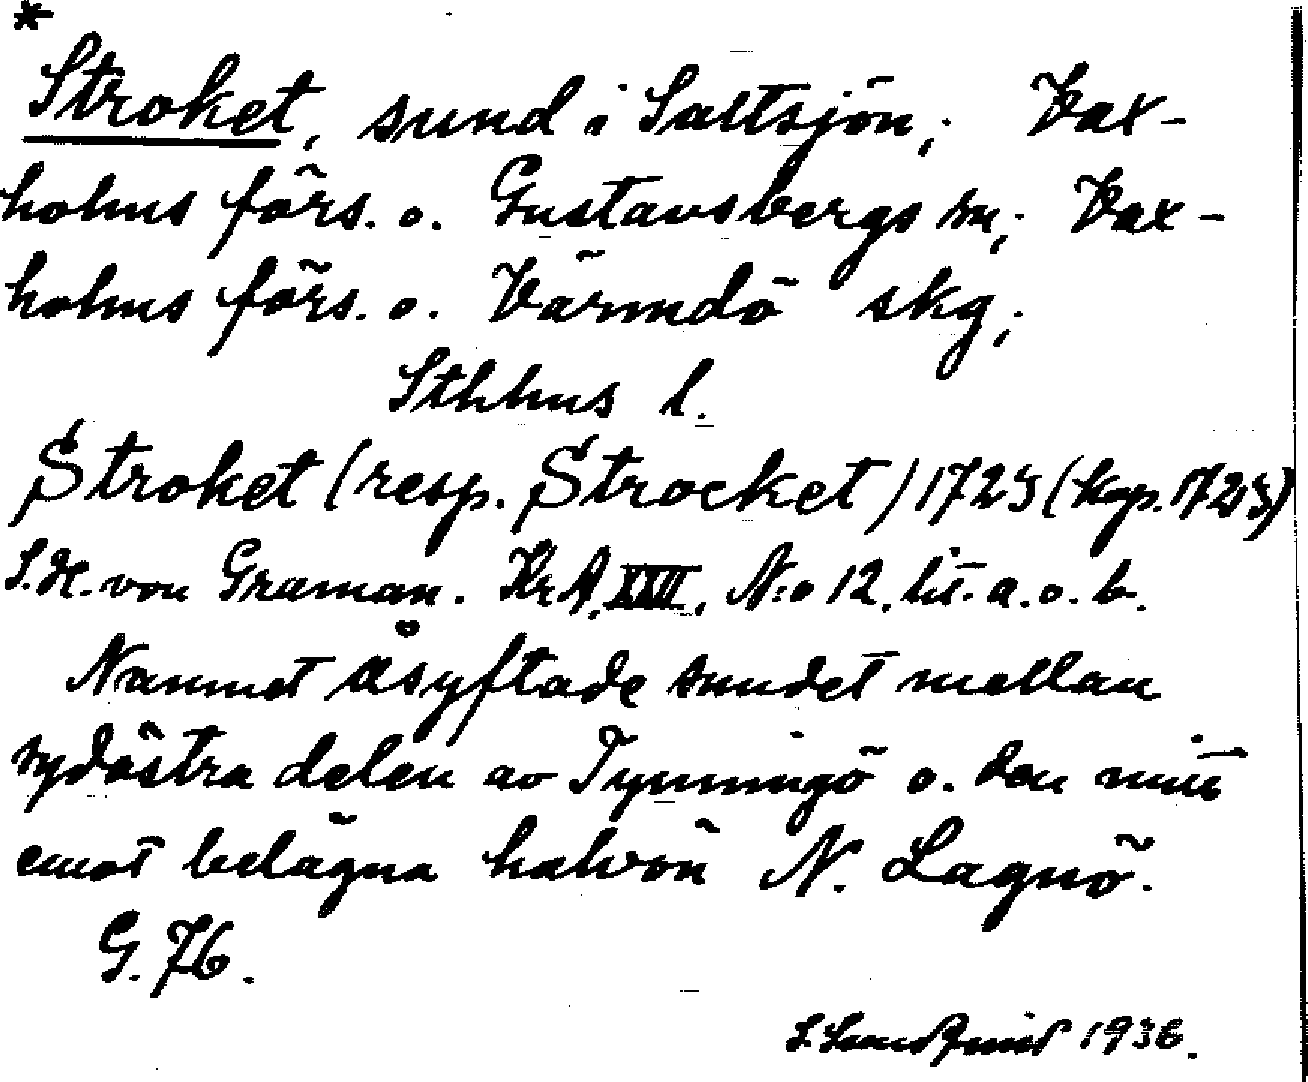 *
Stroket, sund i Saltsjön, Vax-
holms förs. o. Gustavsbergs sn, Vax-
holms förs. o. Värmdö skg,
Sthlms l.
Stroket (resp. Strocket) 1725 (kop. 1725)
von Graman. Kr A. XXII. N:o 12. lit. a. o. b.
Namnet åsyftade sundet mellan
sydöstra delen av Tynningö o. den mitt
emot belägna halvön N. Lagnö.
G. 76.
1936.